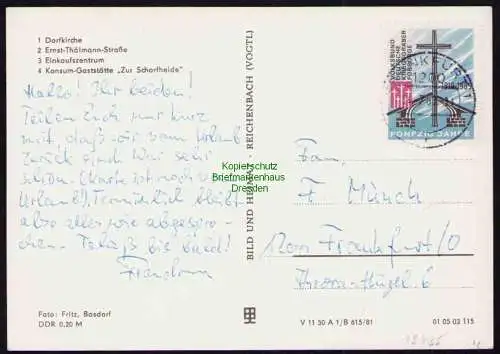 1 Dorfkirche
2 Ernst-Thälmann-Straße
3 Einkaufszentrum
4 Konsum-Gaststätte „Zur Schorfheide"
Hallo! Ihr beiden!
Teilen Euch nur kurz
mit daß wir vom Urlaub
zurück sind. War sehr
schön. (Karte ist noch v.
Urlaub!) Terminlich bleibt
also alles wie abgespro-
chen. Tschüß bis bald!
Foto: Fritz, Basdorf
DDR 0,20 M
BILD UND HEIMAT REICHENBACH (VOGTL)
Kopierschutz
Briefmarkenhaus
Dresden
VOLKSBUND
DEUTSCHE
KRIEGSGRÄBER
FÜRSORGE
FÜNFZIG JAHRE
1200
Fam.
F. Münch
1200 Frankfurt/O
6
V 11 50 A 1/B 615/81
01 05 03 115